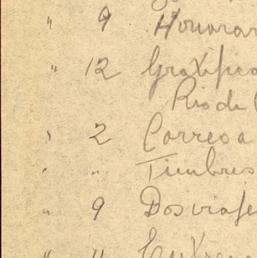 " 9 Honorar
" 12 Gratifica
Rio de
" 2 Correo a
" " Timbres
" 9 Dos viaje
" 11